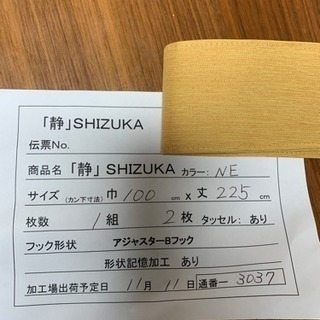 「静」SHIZUKA
伝票No.
商品名 「静」SHIZUKA カラー: NE
サイズ (カン下寸法) 巾 100 cm x 丈 225 cm
枚数 1 組 2 枚 タッセル: あり
フック形状 アジャスターBフック
形状記憶加工 あり
加工場出荷予定日 11 月 11 日 通番一 3037